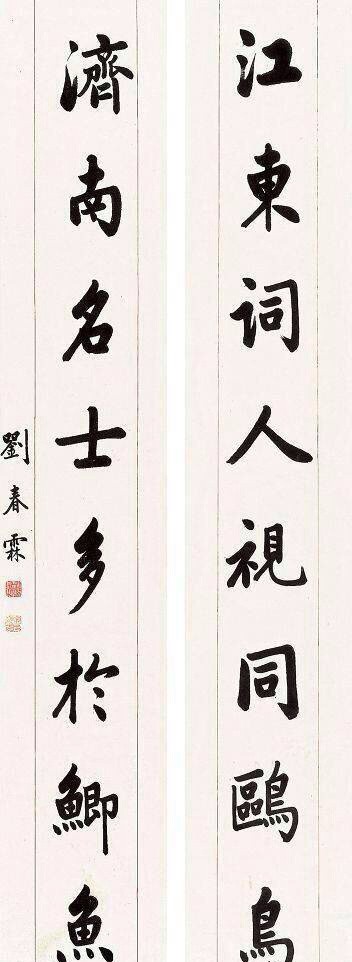 江東詞人視同鷗鳥
濟南名士多於鯽魚
劉春霖